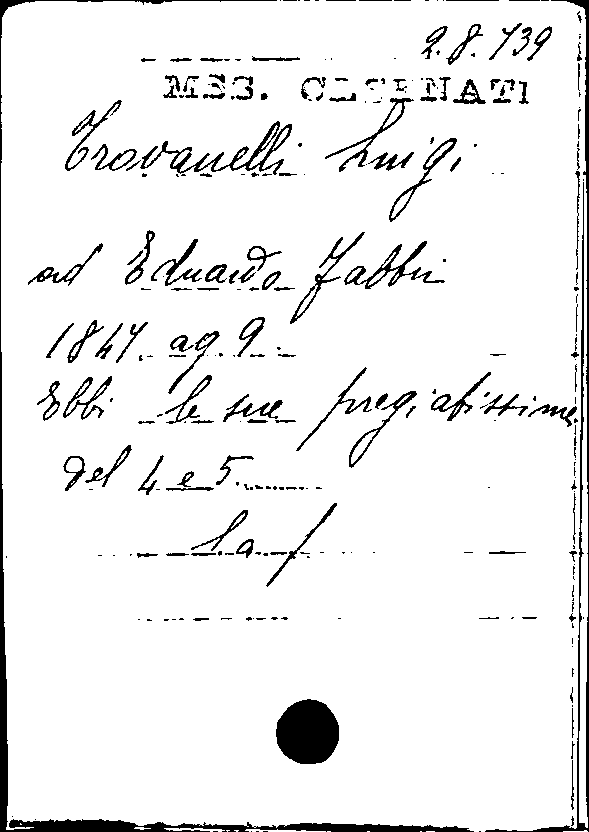 2.8.739
MSS. CESENATI
Trovanelli Luigi
ad Eduardo Fabbri
1847. ag. 9.
Ebbi le sue pregiatissime
del 4 e 5.
L. a. f